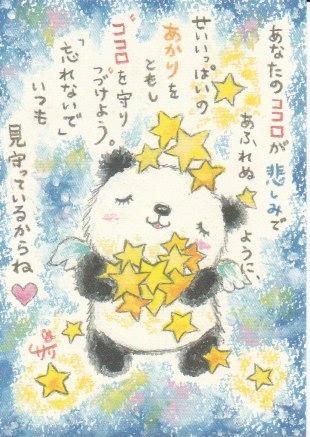 あなたのココロが悲しみで
あふれぬように、
せいいっぱいの
あかりを
ともし
ココロを守り
つづけよう。
「忘れないで」
いつも
見守っているからね